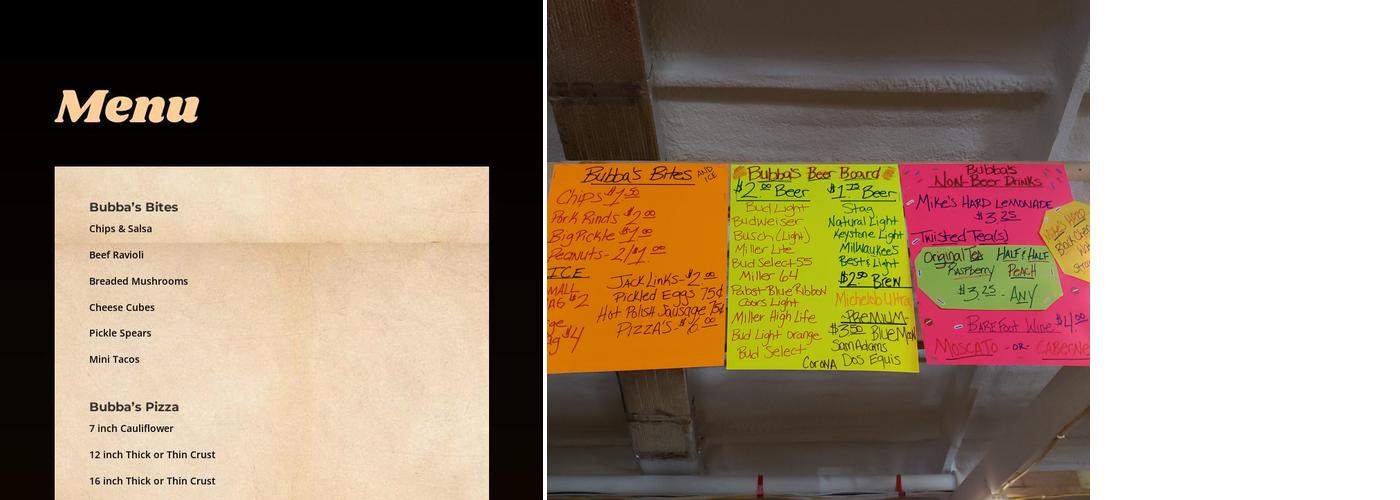 Menu
Bubba's Bites
Chips & Salsa
Beef Ravioli
Breaded Mushrooms
Cheese Cubes
Pickle Spears
Mini Tacos
Bubba's Pizza
7 inch Cauliflower
12 inch Thick or Thin Crust
16 inch Thick or Thin Crust
Bubba's Bites AND ICE
Chips $1.50
Pork Rinds $2.00
Big Pickle $1.00
Peanuts - 2/$1.00
ICE
MALL
AG $2
ge
g $4
Jack Links - $2.00
Pickled Eggs 75¢
Hot Polish Sausage 75¢
Pizza's - $6.00
Bubba's Beer Board
$2.00 Beer
Bud Light
Budweiser
Busch (Light)
Miller Lite
Bud Select 55
Miller 64
Pabst Blue Ribbon
Coors Light
Miller High Life
Bud Light Orange
Bud Select
$1.75 Beer
Stag
Natural Light
Keystone Light
Milwaukee's
Best & Light
$2.50 Brew
Michelob Ultra
-PREMIUM-
$3.50 Blue Moon
Sam Adams
Corona Dos Equis
Bubba's
Non-Beer Drinks
Mike's HARD Lemonade
$3.25
Twisted Tea(s)
Original Tea Half & Half
Raspberry Peach
$3.25 - Any
Mike's HARD
Black Cher
Barefoot Wine $4.00
Moscato -OR- Caberne